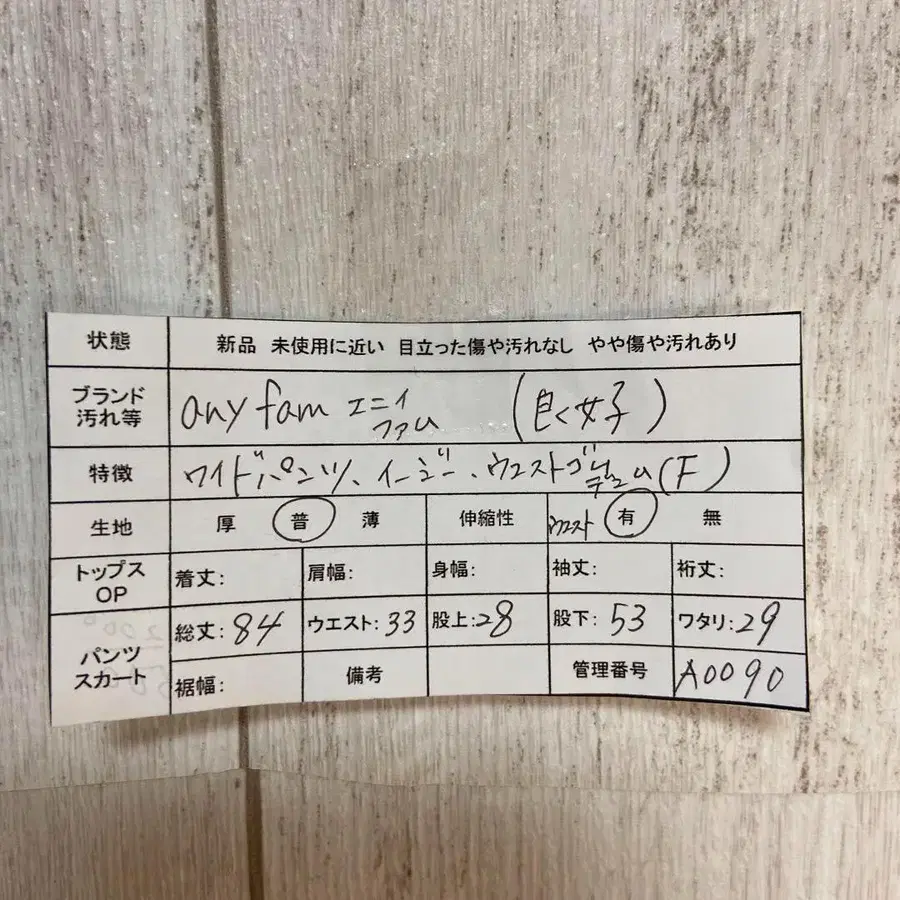 状態 新品 未使用に近い 目立った傷や汚れなし やや傷や汚れあり
ブランド 汚れ等 any fam エニィファム (良く女子)
特徴 ワイドパンツ、イージー、ウエストゴム (F)
生地 厚 普 薄 伸縮性 ウエスト 有 無
トップス OP 着丈: 肩幅: 身幅: 袖丈: 裄丈:
パンツ スカート 総丈:84 ウエスト:33 股上:28 股下:53 ワタリ:29
裾幅: 備考 管理番号 A0090